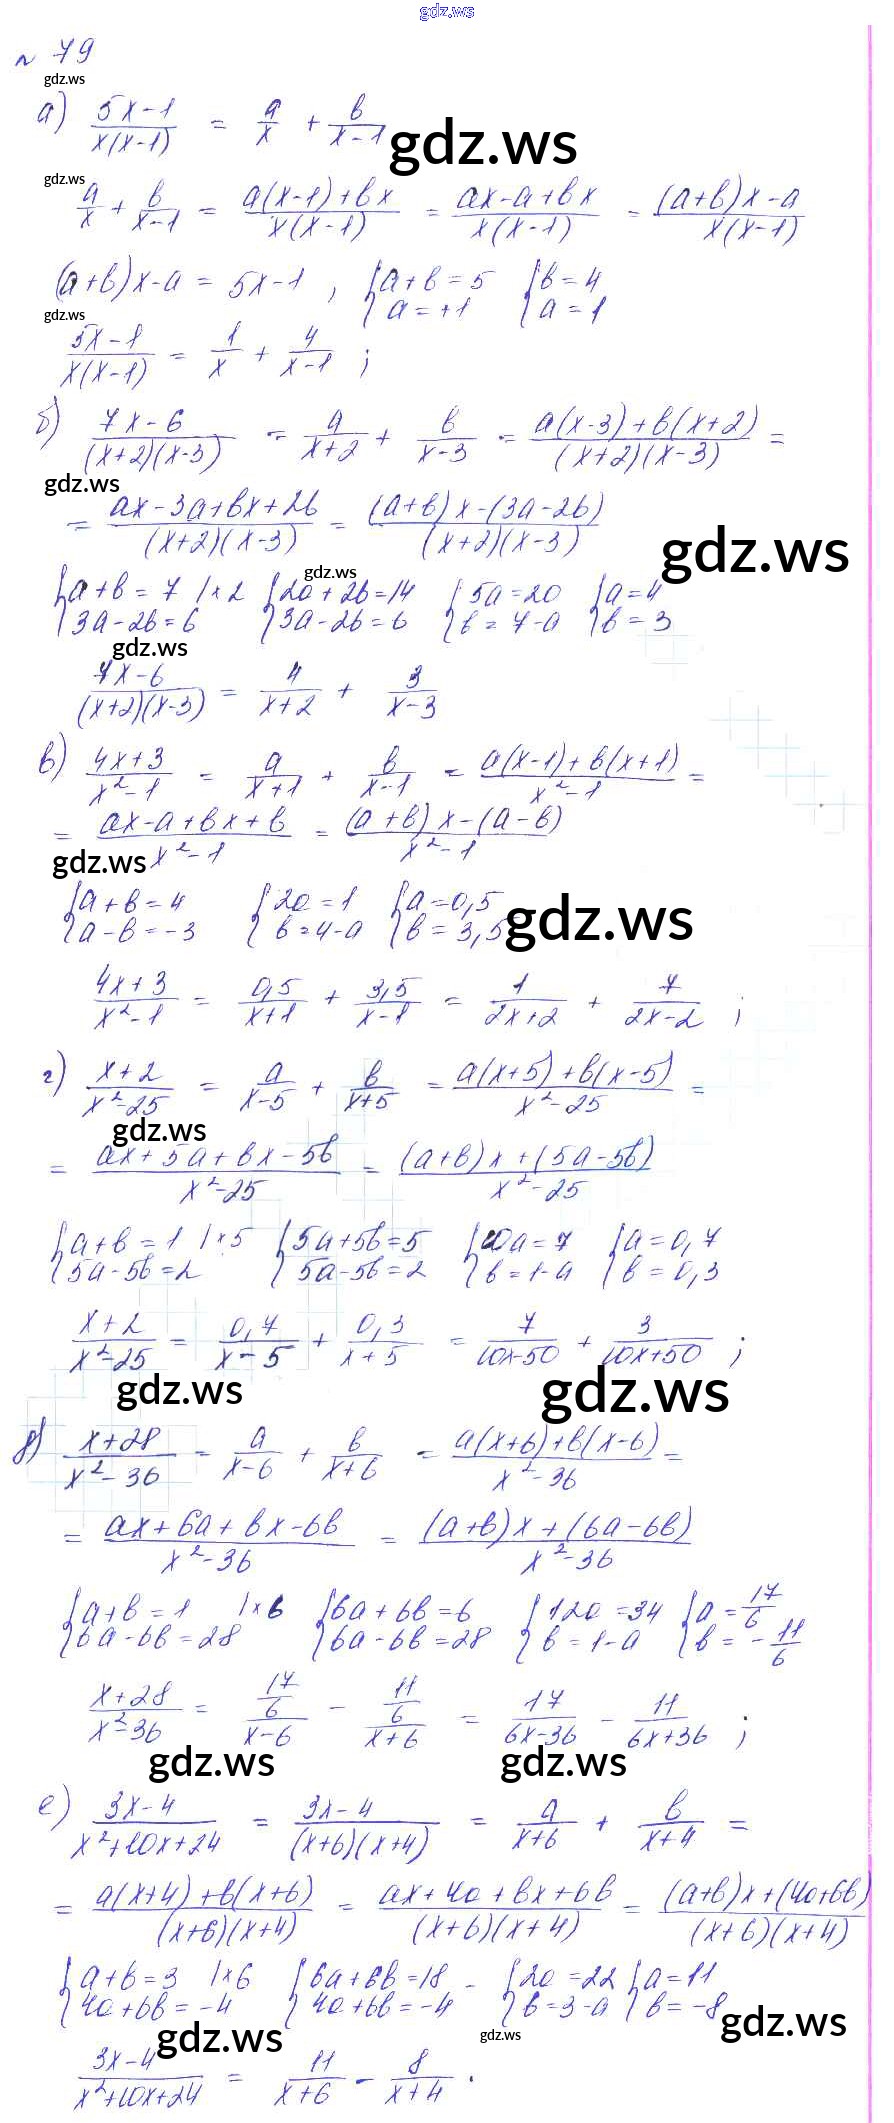 gdz.ws
№ 79
gdz.ws
а) (5x-1)/(x(x-1)) = a/x + b/(x-1)
gdz.ws
gdz.ws
a/x + b/(x-1) = (a(x-1)+bx)/(x(x-1)) = (ax-a+bx)/(x(x-1)) = ((a+b)x-a)/(x(x-1))
(a+b)x-a = 5x-1 , {a+b=5 {b=4
a=+1 a=1
gdz.ws
(5x-1)/(x(x-1)) = 1/x + 4/(x-1) ;
б) (7x-6)/((x+2)(x-3)) = a/(x+2) + b/(x-3) = (a(x-3)+b(x+2))/((x+2)(x-3)) =
gdz.ws
= (ax-3a+bx+2b)/((x+2)(x-3)) = ((a+b)x-(3a-2b))/((x+2)(x-3))
gdz.ws
gdz.ws
{a+b=7 |×2 {2a+2b=14 {5a=20 {a=4
3a-2b=6 3a-2b=6 b=7-a b=3
gdz.ws
(7x-6)/((x+2)(x-3)) = 4/(x+2) + 3/(x-3)
в) (4x+3)/(x²-1) = a/(x+1) + b/(x-1) = (a(x-1)+b(x+1))/(x²-1) =
= (ax-a+bx+b)/(x²-1) = ((a+b)x-(a-b))/(x²-1)
gdz.ws
{a+b=4 {2a=1 {a=0,5
a-b=-3 b=4-a b=3,5
gdz.ws
(4x+3)/(x²-1) = 0,5/(x+1) + 3,5/(x-1) = 1/(2x+2) + 7/(2x-2) ;
г) (x+2)/(x²-25) = a/(x-5) + b/(x+5) = (a(x+5)+b(x-5))/(x²-25) =
gdz.ws
= (ax+5a+bx-5b)/(x²-25) = ((a+b)x+(5a-5b))/(x²-25)
{a+b=1 |×5 {5a+5b=5 {10a=7 {a=0,7
5a-5b=2 5a-5b=2 b=1-a b=0,3
(x+2)/(x²-25) = 0,7/(x-5) + 0,3/(x+5) = 7/(10x-50) + 3/(10x+50) ;
gdz.ws
gdz.ws
д) (x+28)/(x²-36) = a/(x-6) + b/(x+6) = (a(x+6)+b(x-6))/(x²-36) =
= (ax+6a+bx-6b)/(x²-36) = ((a+b)x+(6a-6b))/(x²-36)
{a+b=1 |×6 {6a+6b=6 {12a=34 {a=17/6
6a-6b=28 6a-6b=28 b=1-a b=-11/6
(x+28)/(x²-36) = (17/6)/(x-6) - (11/6)/(x+6) = 17/(6x-36) - 11/(6x+36) ;
gdz.ws
gdz.ws
е) (3x-4)/(x²+10x+24) = (3x-4)/((x+6)(x+4)) = a/(x+6) + b/(x+4) =
= (a(x+4)+b(x+6))/((x+6)(x+4)) = (ax+4a+bx+6b)/((x+6)(x+4)) = ((a+b)x+(4a+6b))/((x+6)(x+4))
{a+b=3 |×6 {6a+6b=18 - {2a=22 {a=11
4a+6b=-4 4a+6b=-4 b=3-a b=-8
gdz.ws
gdz.ws
gdz.ws
(3x-4)/(x²+10x+24) = 11/(x+6) - 8/(x+4) .